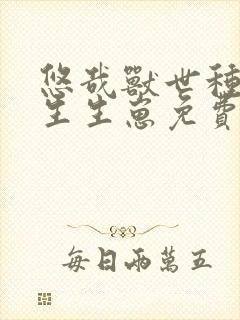 悠哉獸世種
生生崽免費
每日兩萬五